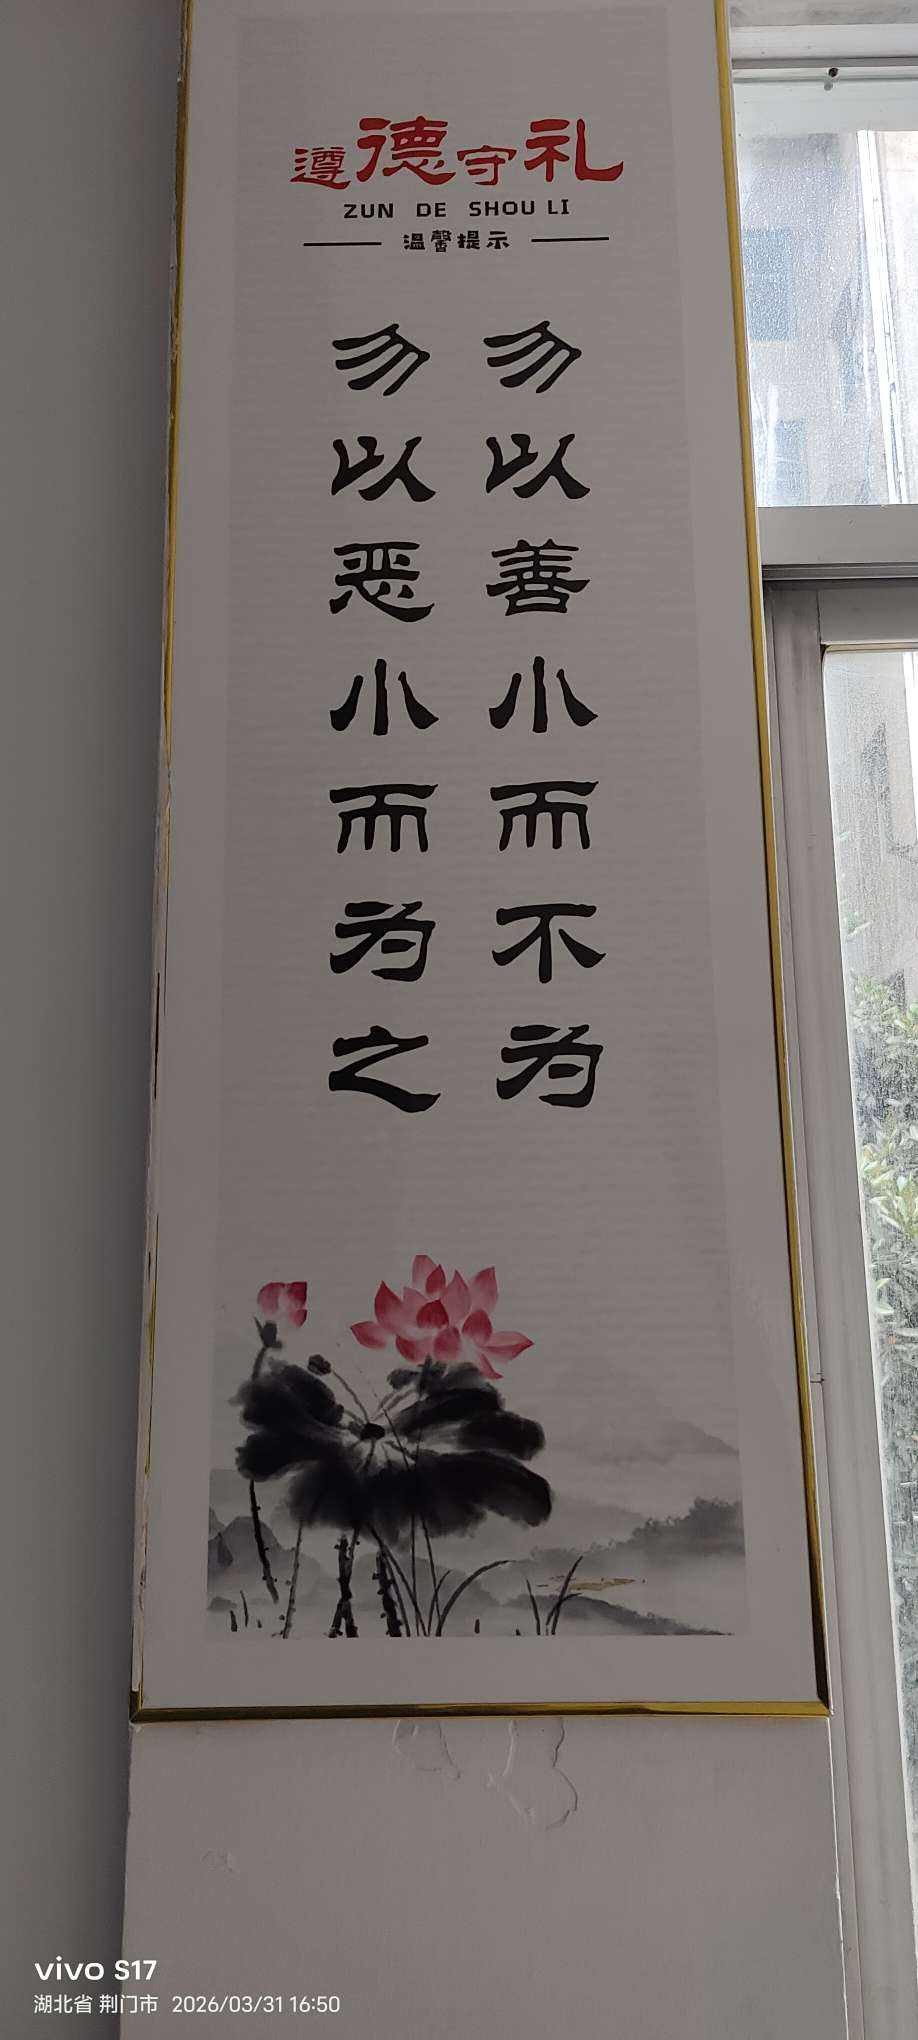 遵德守礼
ZUN DE SHOU LI
温馨提示
勿以善小而不为
勿以恶小而为之
vivo S17
湖北省 荆门市 2026/03/31 16:50